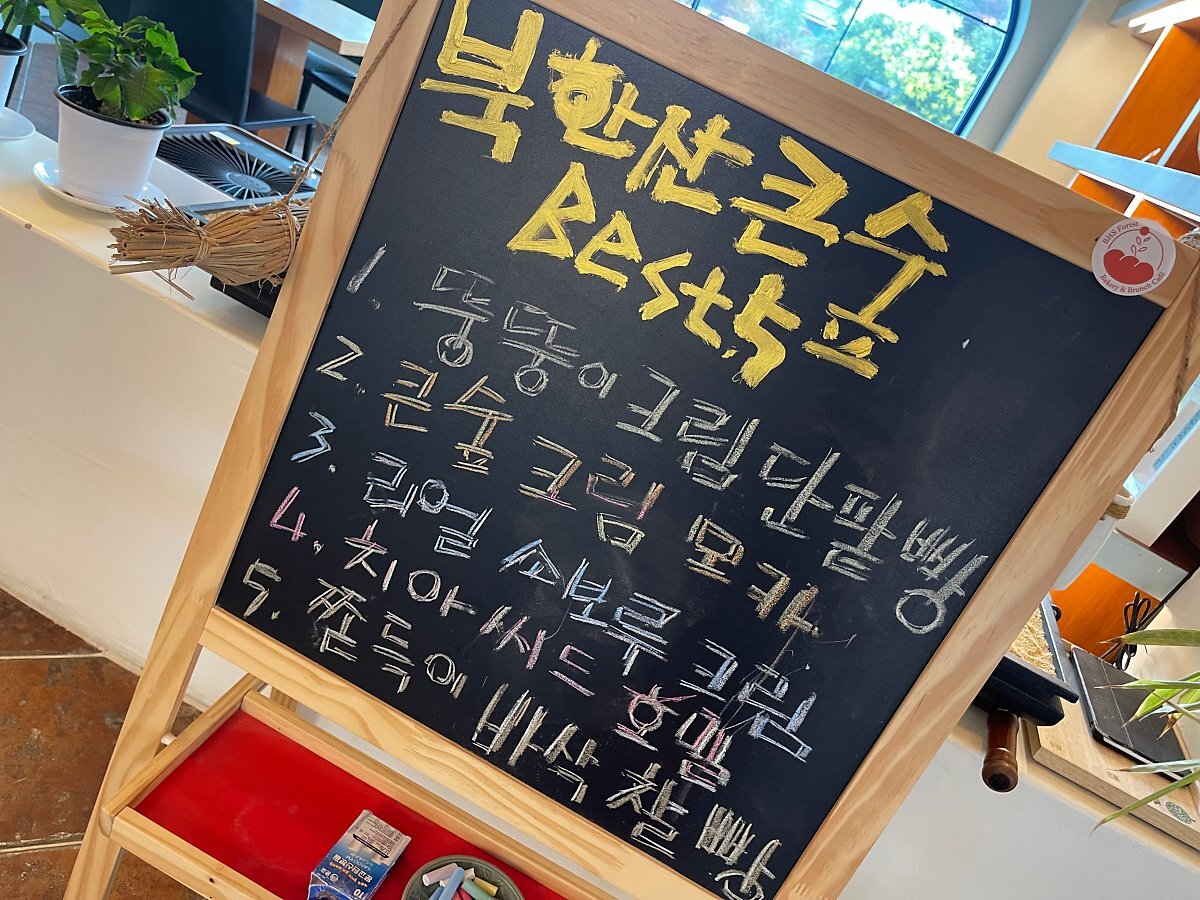 북한산큰숲
Best.5
1. 뚱뚱이크림단팥빵
2. 큰숲 크림 모카
3. 리얼 소보루 크림
4. 치아씨드 호밀
5. 쫀득이 바삭찰빵
BHS Forest
Bakery & Brunch Café